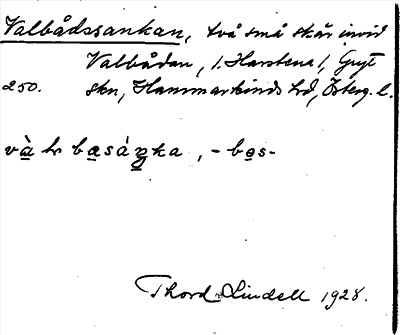 Valbådssankan, två små skär invid
Valbådan, /. Harstena /, Gryt
250. skn, Hammarkinds hd, Österg. l.
Thord Lindell 1928.